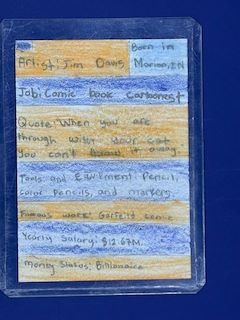 Born in
Artist: Jim Davis Marion, IN
Job: Comic book cartoonest
Quote: When you are
through with your cat
you can't it away.
Tools and Equikment: Pencil,
color pencils, and markers
Famous work: Garfield comic
Yearly Salary: $12.67M
Money Status: Billionaire